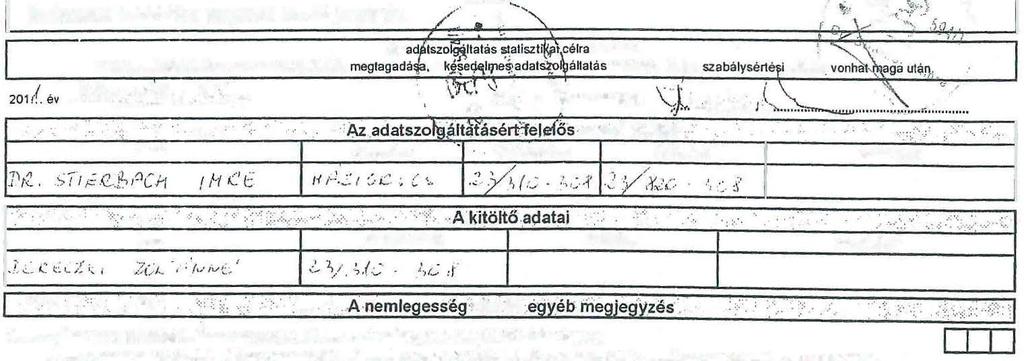 adatszolgáltatás statisztikai célra
megtagadása, késedelmes adatszolgáltatás szabálysértési vonhat maga után
201 . év
Az adatszolgáltatásért felelős
DR. STIERBACH IMRE HÁZIORVOS 23/310-308 23/820-308
A kitöltő adatai
ZOLTÁNNÉ 23/310-308
A nemlegesség egyéb megjegyzés